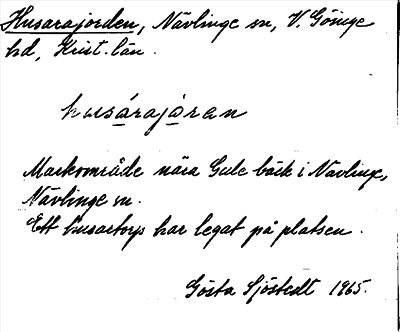 Husarajorden, Nävlinge sn, V. Göinge
hd, Krist. län.
husárajóran
Markområde nära Gule bäck i Nävlinge,
Nävlinge sn.
Ett husartorp har legat på platsen.
Gösta Sjöstedt 1965.